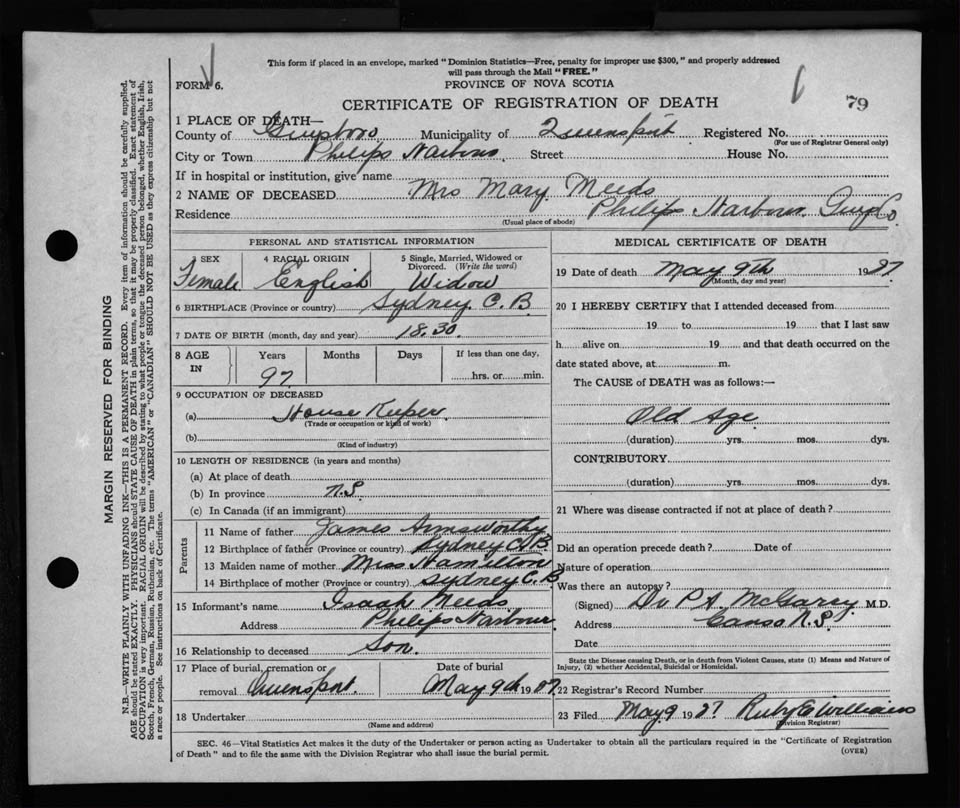 This form if placed in an envelope, marked "Dominion Statistics—Free, penalty for improper use $300," and properly addressed
will pass through the Mail "FREE."
FORM 6.
PROVINCE OF NOVA SCOTIA
CERTIFICATE OF REGISTRATION OF DEATH
79
1 PLACE OF DEATH—
County of Guysboro Municipality of Queensport Registered No.
(For use of Registrar General only)
City or Town Philips Harbour Street House No.
If in hospital or institution, give name
2 NAME OF DECEASED Mrs Mary Meeds
Residence Philips Harbour Guys Co.
(Usual place of abode)
PERSONAL AND STATISTICAL INFORMATION
3 SEX 4 RACIAL ORIGIN 5 Single, Married, Widowed or Divorced. (Write the word)
Female English Widow
6 BIRTHPLACE (Province or country) Sydney C.B
7 DATE OF BIRTH (month, day and year) 18.30
8 AGE IN Years Months Days If less than one day,
97 hrs. or min.
9 OCCUPATION OF DECEASED
(a) House Keeper
(Trade or occupation or kind of work)
(b)
(Kind of industry)
10 LENGTH OF RESIDENCE (in years and months)
(a) At place of death
(b) In province N.S
(c) In Canada (if an immigrant)
Parents
11 Name of father James Armsworthy
12 Birthplace of father (Province or country) Sydney C.B
13 Maiden name of mother Miss Hamilton
14 Birthplace of mother (Province or country) Sydney C.B
15 Informant's name Isaah Meeds
Address Philips Harbour
16 Relationship to deceased Son
17 Place of burial, cremation or removal Queensport Date of burial May 9th 1927
18 Undertaker
(Name and address)
MEDICAL CERTIFICATE OF DEATH
19 Date of death May 9th 1927
(Month, day and year)
20 I HEREBY CERTIFY that I attended deceased from
19 to 19 that I last saw
h alive on 19 and that death occurred on the
date stated above, at m.
The CAUSE of DEATH was as follows:—
Old Age
(duration) yrs. mos. dys.
CONTRIBUTORY
(duration) yrs. mos. dys.
21 Where was disease contracted if not at place of death?
Did an operation precede death? Date of
Nature of operation
Was there an autopsy?
(Signed) Dr P A McGarry M.D.
Address Canso N.S.
Date
State the Disease causing Death, or in death from Violent Causes, state (1) Means and Nature of
Injury, (2) whether Accidental, Suicidal or Homicidal.
22 Registrar's Record Number
23 Filed May 9 1927 Ruby E Williams
(Division Registrar)
SEC. 46—Vital Statistics Act makes it the duty of the Undertaker or person acting as Undertaker to obtain all the particulars required in the "Certificate of Registration
of Death" and to file the same with the Division Registrar who shall issue the burial permit.
(OVER)
MARGIN RESERVED FOR BINDING
N.B.—WRITE PLAINLY WITH UNFADING INK—THIS IS A PERMANENT RECORD. Every item of information should be carefully supplied.
AGE should be stated EXACTLY. PHYSICIANS should STATE CAUSE OF DEATH in plain terms, so that it may be properly classified. Exact statement of
OCCUPATION is very important. RACIAL ORIGIN will be described by stating to what people or tongue the deceased person belonged, whether English, Irish,
Scotch, French, German, Russian, Ruthenian, etc. The terms "AMERICAN" or "CANADIAN" SHOULD NOT BE USED as they express citizenship but not
a race or people. See instructions on back of Certificate.